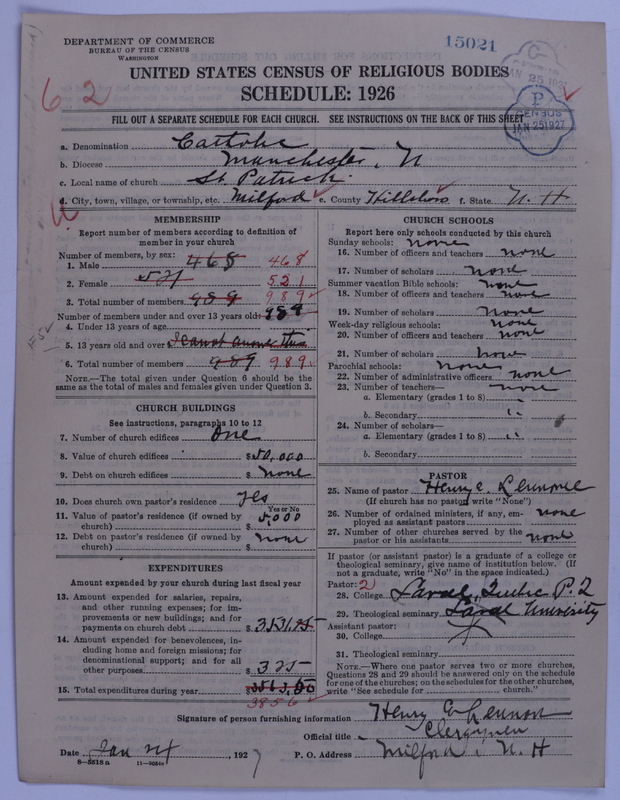 DEPARTMENT OF COMMERCE
BUREAU OF THE CENSUS
WASHINGTON
15021
JAN 25 1927
P
CENSUS
JAN 25 1927
UNITED STATES CENSUS OF RELIGIOUS BODIES
SCHEDULE: 1926
62
FILL OUT A SEPARATE SCHEDULE FOR EACH CHURCH. SEE INSTRUCTIONS ON THE BACK OF THIS SHEET
a. Denomination Catholic
b. Diocese Manchester, N
c. Local name of church St Patrick
d. City, town, village, or township, etc. Milford e. County Hillsboro f. State N. H
MEMBERSHIP
Report number of members according to definition of member in your church
Number of members, by sex:
1. Male 468 468
2. Female 521 521
3. Total number of members 989 989
Number of members under and over 13 years old: 989
4. Under 13 years of age
5. 13 years old and over I cannot answer this
6. Total number of members 989 989
NOTE.—The total given under Question 6 should be the same as the total of males and females given under Question 3.
CHURCH BUILDINGS
See instructions, paragraphs 10 to 12
7. Number of church edifices One
8. Value of church edifices $50,000
9. Debt on church edifices $ none
10. Does church own pastor's residence yes
Yes or No
11. Value of pastor's residence (if owned by church) $ 5000
12. Debt on pastor's residence (if owned by church) $ none
EXPENDITURES
Amount expended by your church during last fiscal year
13. Amount expended for salaries, repairs, and other running expenses; for improvements or new buildings; and for payments on church debt $ 3531.25
14. Amount expended for benevolences, including home and foreign missions; for denominational support; and for all other purposes $ 325
15. Total expenditures during year
3856
CHURCH SCHOOLS
Report here only schools conducted by this church
Sunday schools: none
16. Number of officers and teachers none
17. Number of scholars none
Summer vacation Bible schools: none
18. Number of officers and teachers none
19. Number of scholars none
Week-day religious schools: none
20. Number of officers and teachers none
21. Number of scholars none
Parochial schools: none
22. Number of administrative officers none
23. Number of teachers— none
a. Elementary (grades 1 to 8)
b. Secondary
24. Number of scholars—
a. Elementary (grades 1 to 8)
b. Secondary
PASTOR
25. Name of pastor Henry E.
(If church has no pastor, write "None")
26. Number of ordained ministers, if any, employed as assistant pastors none
27. Number of other churches served by the pastor or his assistants none
If pastor (or assistant pastor) is a graduate of a college or theological seminary, give name of institution below. (If not a graduate, write "No" in the space indicated.)
Pastor: 2
28. College Laval, Quebec P. Q
29. Theological seminary Laval University
Assistant pastor:
30. College
31. Theological seminary
NOTE.—Where one pastor serves two or more churches, Questions 28 and 29 should be answered only on the schedule for one of the churches; on the schedules for the other churches, write "See schedule for church."
Signature of person furnishing information Henry E Lennon
Official title Clergyman
Date Jan 24, 1927 P. O. Address Milford, N. H
8—5518a